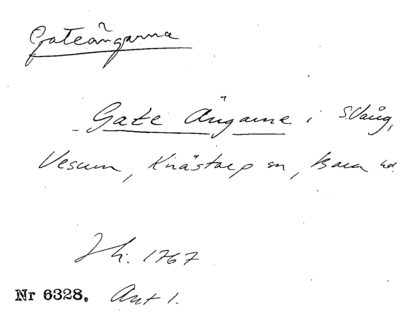 Gateängarna
Gate Ängarne i S.Vång,
Vesum, Knästorp sn, Bara hd.
Jh. 1767
Nr 6328. Akt 1.